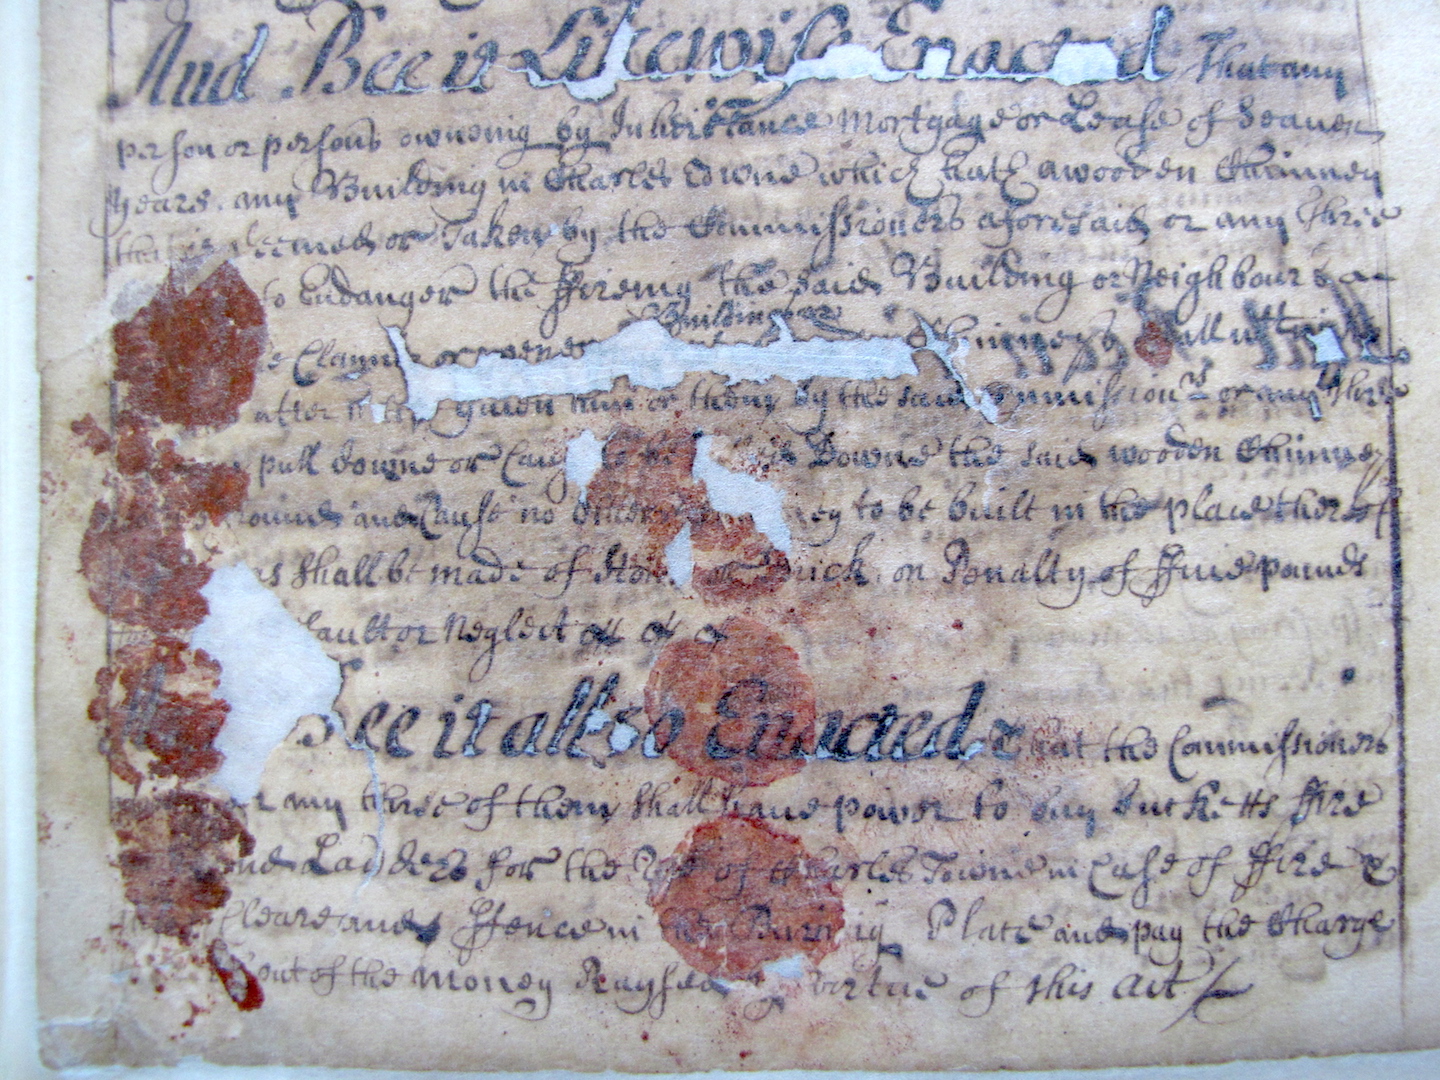 And Bee it Likewise Enacted That any
person or persons owneing by Inherittance Mortgage or Lease of Seaven
yeares any Building in Charles Towne which hath a wooden Chimney
that is deemed or Taken by the Commissioners aforesaid or any Three
to Endanger the ffireing the said Building or Neighbour
Building or
Chimneys shall
after given him or them by the said Commissionrs or any three
pull downe or Downe the said wooden Chimney
and Cause no to be built in the place thereof
as shall be made of Stone or Brick on Penalty of ffive pounds
fault or Neglect & & &
Bee it allso Enacted that the Commissioners
or any three of them shall have power to buy bucketts ffire
and Ladders for the of Charles Towne in Case of ffire &
Cleare and ffence in the Buring Place and pay the Charge
out of the money Raysed by Vertue of this act